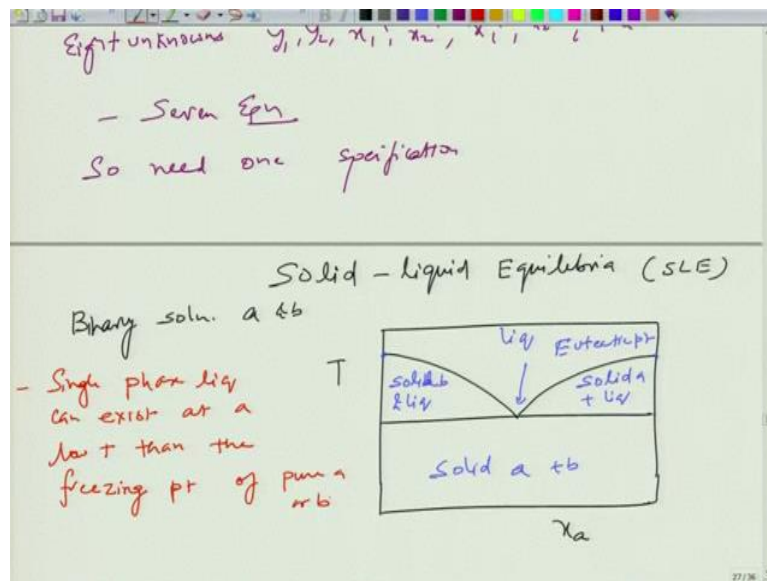 Eight unknowns y1, y2, x1', x2',
- Seven Eqn
So need one specification
Solid - liquid Equilibria (SLE)
Binary soln. a & b
- Single phase liq
can exist at a
low T than the
freezing pt of pure a
or b
T
liq Eutectic pt
solid b
& liq
solid a
+ liq
Solid a + b
xa
27/36